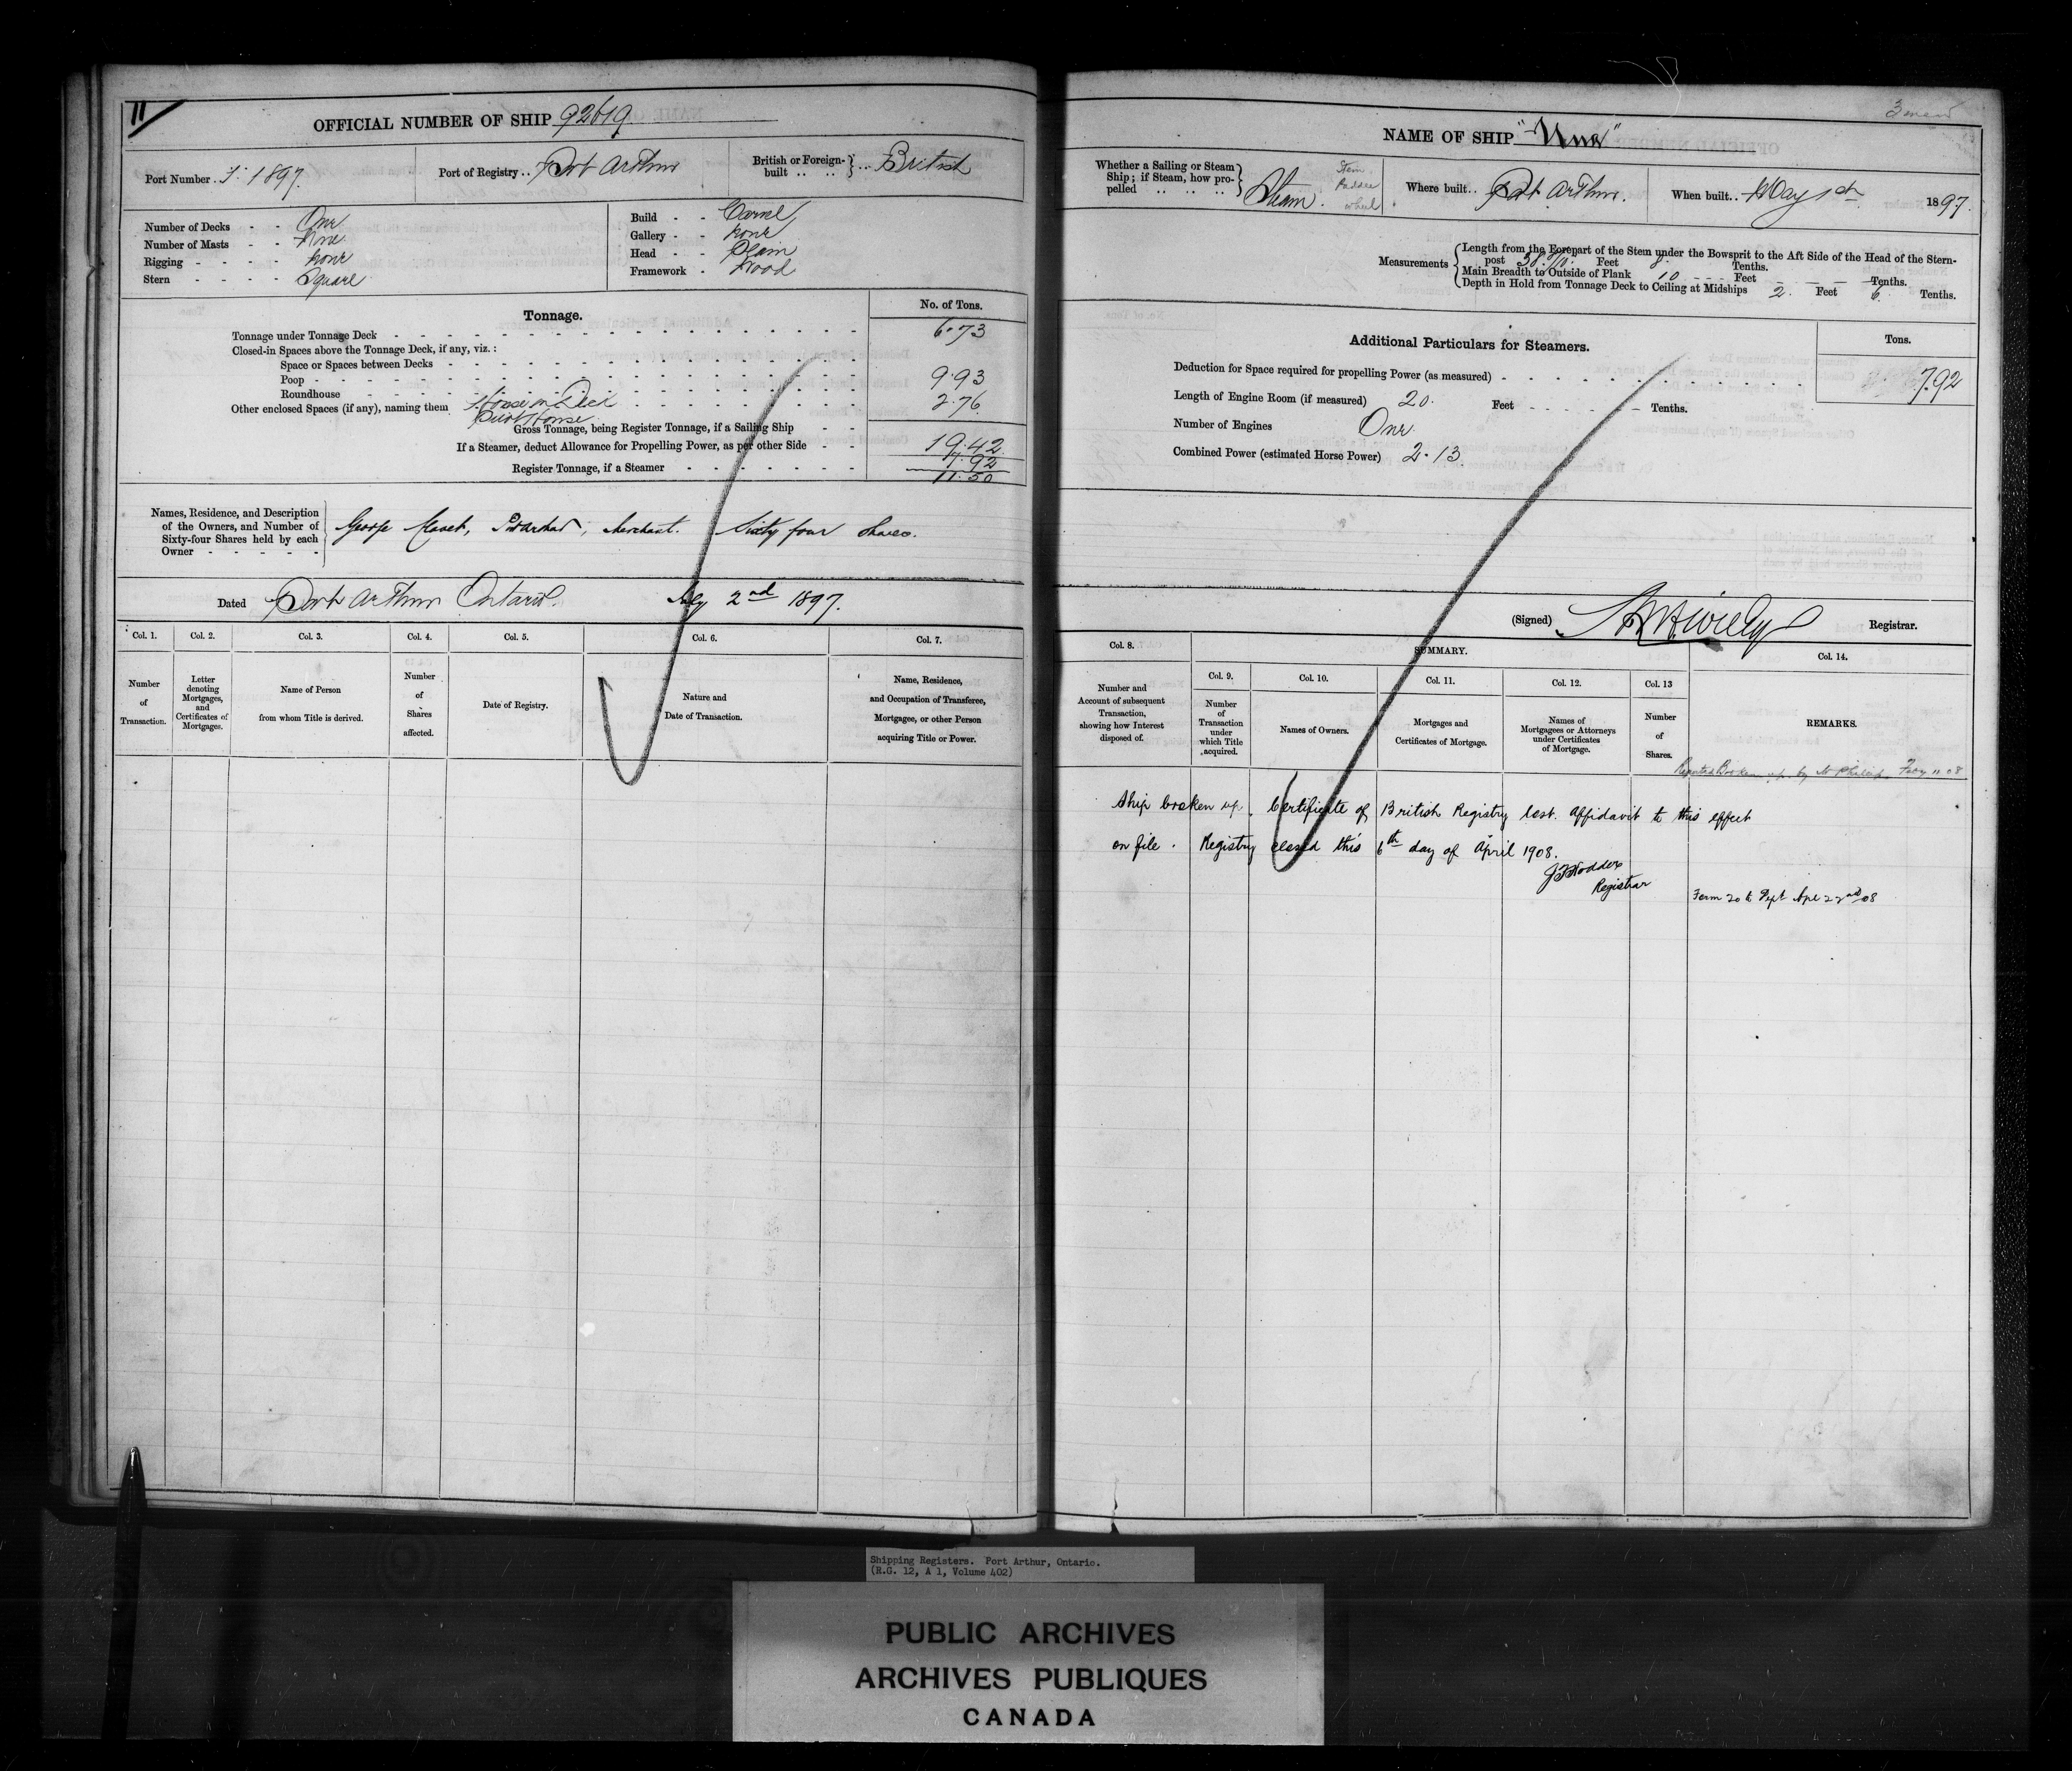 11
OFFICIAL NUMBER OF SHIP 92619.
Port Number 1: 1897.
Port of Registry .. Port Arthur
British or Foreign-built .. .. } .. British
Number of Decks - - One
Number of Masts - - None
Rigging - - - - none
Stern - - - - Square
Build - - Carvel
Gallery - - none
Head - - Plain
Framework - Wood
Tonnage.
No. of Tons.
Tonnage under Tonnage Deck 6.73
Closed-in Spaces above the Tonnage Deck, if any, viz.:
Space or Spaces between Decks
Poop 9.93
Roundhouse
Other enclosed Spaces (if any), naming them House on Deck 2.76
Pilot House
Gross Tonnage, being Register Tonnage, if a Sailing Ship
If a Steamer, deduct Allowance for Propelling Power, as per other Side 19.42
7.92
Register Tonnage, if a Steamer 11.50
Names, Residence, and Description
of the Owners, and Number of
Sixty-four Shares held by each
Owner - - - - -
George Port Arthur, Merchant. Sixty four Shares.
Dated Port Arthur Ontario. 2nd 1897.
Col. 1. Col. 2. Col. 3. Col. 4. Col. 5. Col. 6. Col. 7.
Number of Transaction.
Letter denoting Mortgages, and Certificates of Mortgages.
Name of Person from whom Title is derived.
Number of Shares affected.
Date of Registry.
Nature and Date of Transaction.
Name, Residence, and Occupation of Transferee, Mortgagee, or other Person acquiring Title or Power.
NAME OF SHIP "Una"
Whether a Sailing or Steam
Ship; if Steam, how pro-
pelled .. .. .. ..
Steam.
Stern
Paddle
wheel
Where built .. Port Arthur.
When built .. May 1st 1897.
Measurements
Length from the Forepart of the Stem under the Bowsprit to the Aft Side of the Head of the Stern-
post 38. 8/10. Feet 8. Tenths.
Main Breadth to Outside of Plank 10 - - - Feet - - - Tenths.
Depth in Hold from Tonnage Deck to Ceiling at Midships 2. Feet 6. Tenths.
Additional Particulars for Steamers.
Tons.
Deduction for Space required for propelling Power (as measured) 7.92
Length of Engine Room (if measured) 20. Feet - - - - - - Tenths.
Number of Engines One
Combined Power (estimated Horse Power) 2.13.
(Signed) Registrar.
Col. 8.
SUMMARY.
Col. 14.
Col. 9. Col. 10. Col. 11. Col. 12. Col. 13
Number and Account of subsequent Transaction, showing how Interest disposed of.
Number of Transaction under which Title acquired.
Names of Owners.
Mortgages and Certificates of Mortgage.
Names of Mortgagees or Attorneys under Certificates of Mortgage.
Number of Shares.
REMARKS.
Reported Broken up by 11 08
Ship broken up. Certificate of British Registry lost. Affidavit to this effect
on file. Registry closed this 6th day of April 1908.
Registrar
Form 20 to Dept Apl 22nd 08
Shipping Registers. Port Arthur, Ontario.
(R.G. 12, A 1, Volume 402)
PUBLIC ARCHIVES
ARCHIVES PUBLIQUES
CANADA